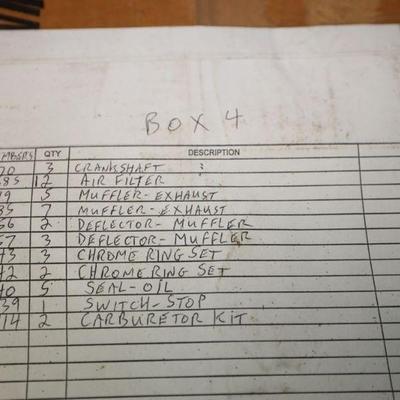 BOX 4
MBERS QTY DESCRIPTION
70 3 CRANKSHAFT
585 12 AIR FILTER
19 5 MUFFLER-EXHAUST
35 7 MUFFLER-EXHAUST
56 2 DEFLECTOR-MUFFLER
57 3 DEFLECTOR-MUFFLER
43 3 CHROME RING SET
42 2 CHROME RING SET
40 5 SEAL-OIL
39 1 SWITCH-STOP
114 2 CARBURETOR KIT